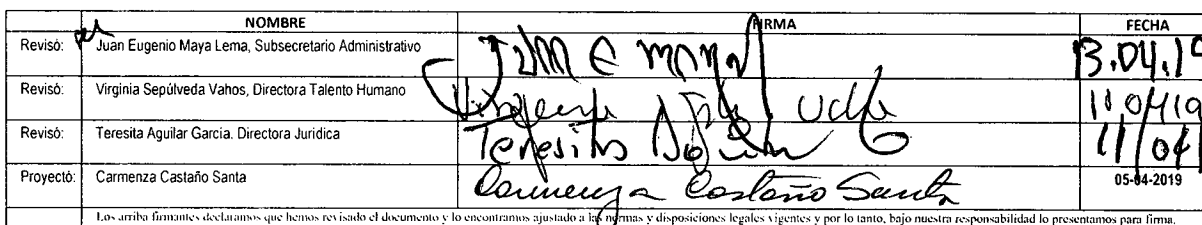 NOMBRE FIRMA FECHA
Revisó: Juan Eugenio Maya Lema, Subsecretario Administrativo Juan E Maya 13.04.19
Revisó: Virginia Sepúlveda Vahos, Directora Talento Humano Virginia 11 0419
Revisó: Teresita Aguilar Garcia. Directora Jurídica Teresita Aguilar 11/04/
Proyectó: Carmenza Castaño Santa Carmenza Castaño Santa 05-04-2019
Los arriba firmantes declaramos que hemos revisado el documento y lo encontramos ajustado a las normas y disposiciones legales vigentes y por lo tanto, bajo nuestra responsabilidad lo presentamos para firma.